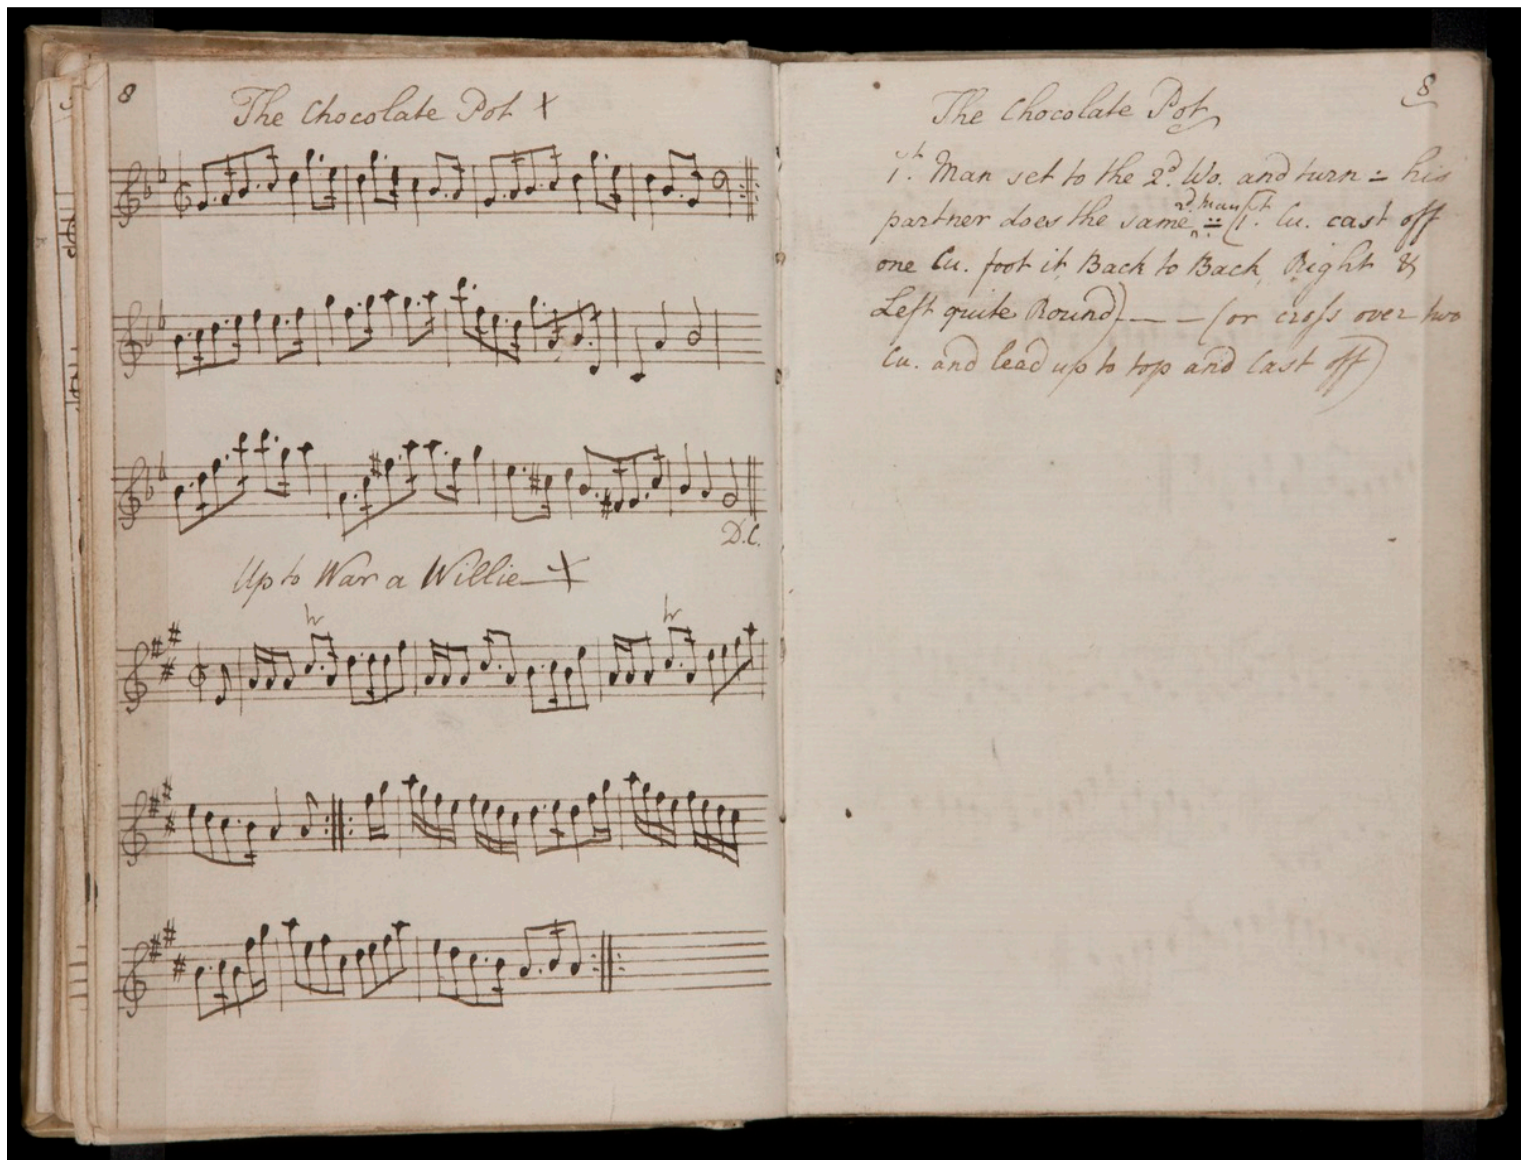 8
The Chocolate Pot X
D.C.
Up to War a Willie X
tr tr
8
The Chocolate Pot
1st. Man set to the 2d. Wo. and turn = his
partner does the same ^ 2d. Man = (1st. Cu. cast off
one Cu. foot it Back to Back, Right &
Left quite Round) - - - (or cross over two
Cu. and lead up to top and Cast off)